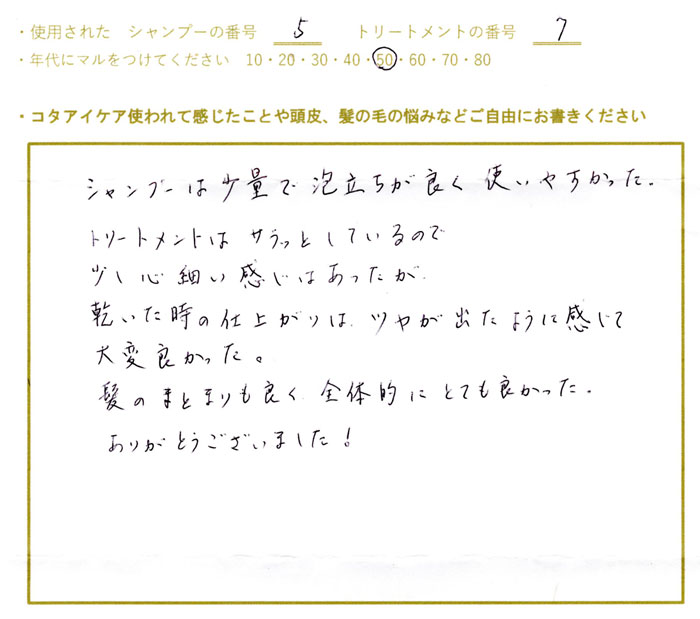 ・使用された シャンプーの番号 5 トリートメントの番号 7
・年代にマルをつけてください 10・20・30・40・50・60・70・80
・コタアイケア使われて感じたことや頭皮、髪の毛の悩みなどご自由にお書きください
シャンプーは少量で泡立ちが良く使いやすかった。
トリートメントは サラッとしているので
少し心細い感じはあったが
乾いた時の仕上がりは、ツヤが出たように感じて
大変良かった。
髪のまとまりも良く、全体的にとても良かった。
ありがとうございました！